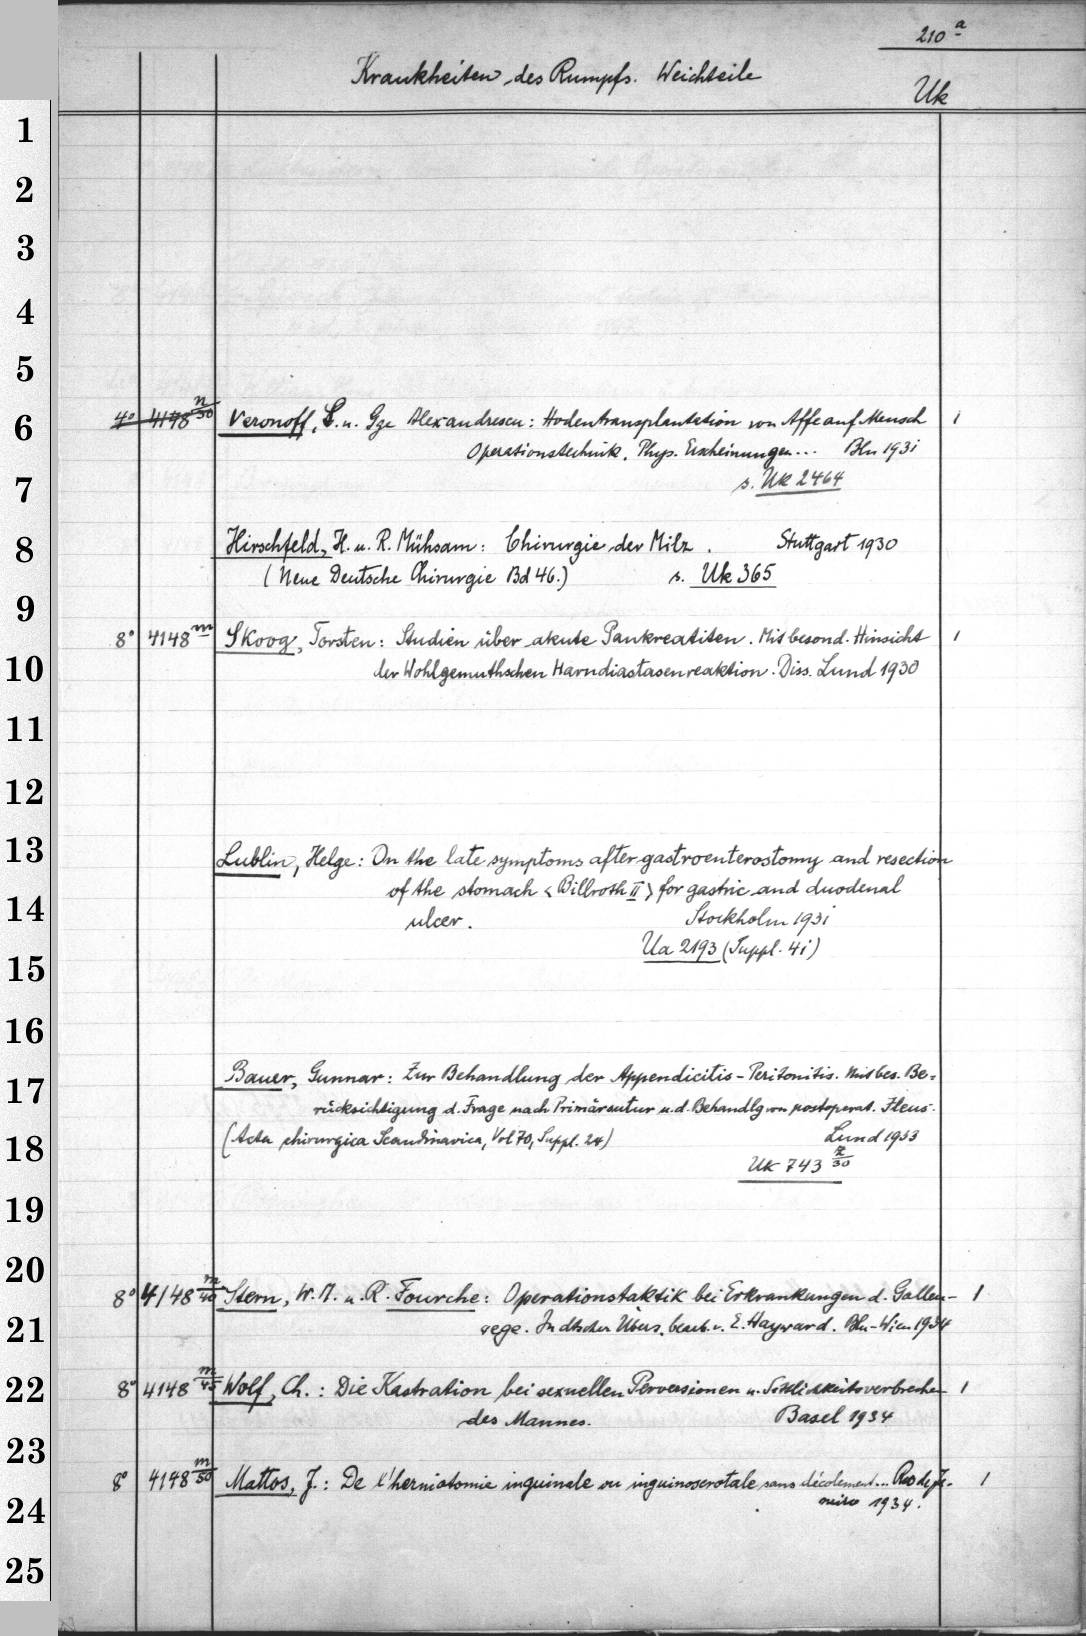 210 a
Krankheiten des Rumpfs. Weichteile
Uk
1
2
3
4
5
6
7
8
9
10
11
12
13
14
15
16
17
18
19
20
21
22
23
24
25
4° 4178 n/30 Veronoff, S. u. Gge Alexandrescu: Hodentransplantation von Affe auf Mensch 1
Operationstechnik. Phys. Erscheinungen... Bln 1931
s. Uk 2464
Hirschfeld, H. u. R. Mühsam: Chirurgie der Milz. Stuttgart 1930
(Neue Deutsche Chirurgie Bd 46.) s. Uk 365
8° 4148 m Skoog, Torsten: Studien über akute Pankreatiten. Mit besond. Hinsicht 1
der Wohlgemuthschen Harndiastasenreaktion. Diss. Lund 1930
Lublin, Helge: On the late symptoms after gastroenterostomy and resection
of the stomach <Billroth II> for gastric and duodenal
ulcer. Stockholm 1931
Ua 2193 (Suppl. 41)
Bauer, Gunnar: Zur Behandlung der Appendicitis-Peritonitis. Mit bes. Be-
rücksichtigung d. Frage nach Primärsutur u. d. Behandlg von postoperat. Ileus.
(Acta chirurgica Scandinavica, Vol 70, Suppl. 24) Lund 1933
Uk 743 z/30
8° 4148 m/40 Stern, W. M. u. R. Fourche: Operationstaktik bei Erkrankungen d. Gallen- 1
wege. In dtscher Übers. bearb. v. E. Hayward. Bln-Wien 1934
8° 4148 m/45 Wolf, Ch.: Die Kastration bei sexuellen Perversionen u. Sittlichkeitsverbrechen 1
des Mannes. Basel 1934
8° 4148 m/50 Mattos, J.: De l'herniotomie inguinale ou inguinoscrotale sans décolement... Rio de Ja- 1
neiro 1934.